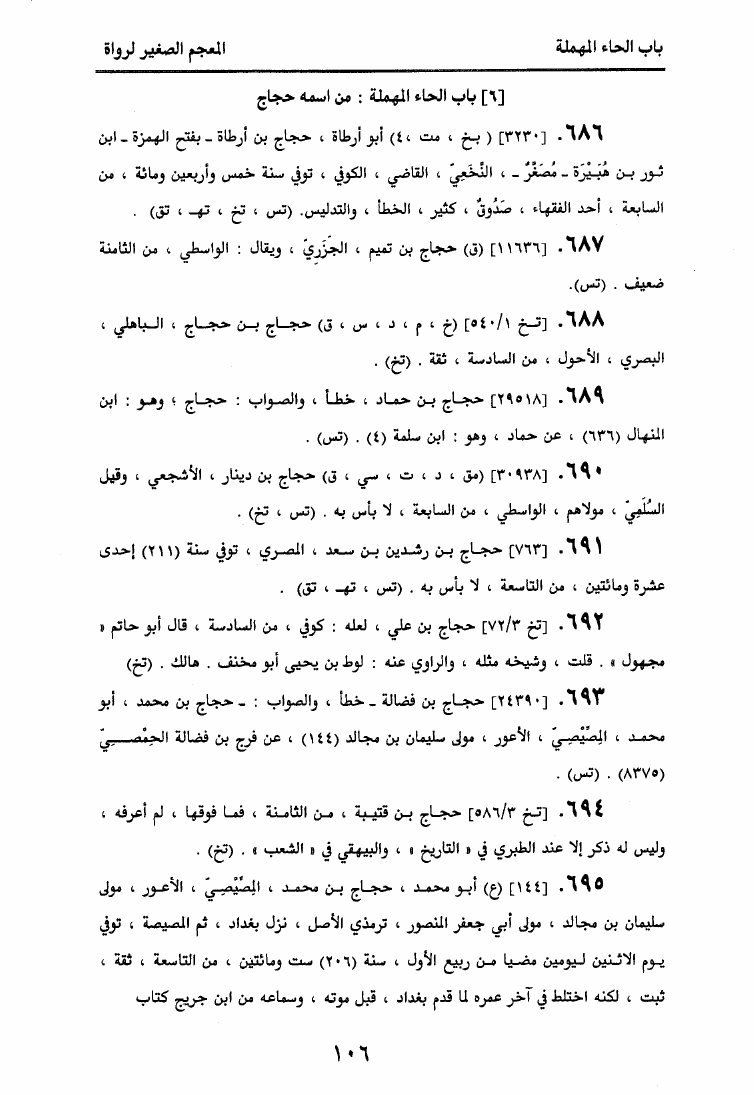 باب الحاء المهملة
المعجم الصغير لرواة
[٦] باب الحاء المهملة : من اسمه حجاج
٦٨٦. [٣٢٣٠] ( بخ ، مت ،٤) أبو أرطاة ، حجاج بن أرطاة ـ بفتح الهمزة ـ ابن
ثور بن هُبَيْرَة ـ مُصَغَّرٌ ـ ، النَّخَعِيّ ، القاضي ، الكوفي ، توفي سنة خمس وأربعين ومائة ، من
السابعة ، أحد الفقهاء ، صَدُوقٌ ، كثير ، الخطأ ، والتدليس. (تس ، تخ ، تهـ ، تق) .
٦٨٧. [١١٦٣٦] (ق) حجاج بن تميم ، الجَزَرِيّ ، ويقال : الواسطي ، من الثامنة
ضعيف . (تس).
٦٨٨. [تـخ ٥٤٠/١] (خ ، م ، د ، س ، ق) حجـاج بـن حجـاج ، الـباهلي ،
البصري ، الأحول ، من السادسة ، ثقة . (تخ) .
٦٨٩. [٢٩٥١٨] حجـاج بـن حمـاد ، خطـأ ، والصواب : حجـاج ؛ وهـو : ابن
المنهال (٦٣٦) ، عن حماد ، وهو : ابن سلمة (٤) . (تس) .
٦٩٠. [٣٠٩٣٨] (مق ، د ، ت ، سي ، ق) حجاج بن دينار ، الأشجعي ، وقيل
السُّلَمِيّ ، مولاهم ، الواسطي ، من السابعة ، لا بأس به . (تس ، تخ) .
٦٩١. [٧٦٣] حجـاج بـن رشـدين بـن سعـد ، المصـري ، توفي سنة (٢١١) إحدى
عشرة ومائتين ، من التاسعة ، لا بأس به . (تس ، تهـ ، تق) .
٦٩٢. [تخ ٧٢/٣] حجاج بن علي ، لعله : كوفي ، من السادسة ، قال أبو حاتم «
مجهول » . قلت ، وشيخه مثله ، والراوي عنه : لوط بن يحيى أبو مخنف . هالك . (تخ)
٦٩٣. [٢٤٣٩٠] حجـاج بن فضالة ـ خطأ ، والصواب : ـ حجاج بن محمد ، أبو
محمـد ، المِصِّيْصِـيّ ، الأعور ، مولى سليمان بن مجالد (١٤٤) ، عن فرج بن فضالة الحِمْصـــيّ
(٨٣٧٥) . (تس) .
٦٩٤. [تـخ ٥٨٦/٣] حجـاج بـن قتيبـة ، مـن الثامنـة ، فمـا فوقهـا ، لم أعرفه ،
وليس له ذكر إلا عند الطبري في « التاريخ » ، والبيهقي في « الشعب » . (تخ) .
٦٩٥. [١٤٤] (ع) أبـو محمـد ، حجـاج بـن محمـد ، المِصِّيْصِـيّ ، الأعـور ، مولى
سليمان بن مجالد ، مولى أبي جعفر المنصور ، ترمذي الأصل ، نزل بغداد ، ثم المصيصة ، توفي
يـوم الاثـنين ليـومين مضيـا مـن ربيع الأول ، سنة (٢٠٦) ست ومائتين ، من التاسعة ، ثقة ،
ثبت ، لكنه اختلط في آخر عمره لما قدم بغداد ، قبل موته ، وسماعه من ابن جريج كتاب
١٠٦